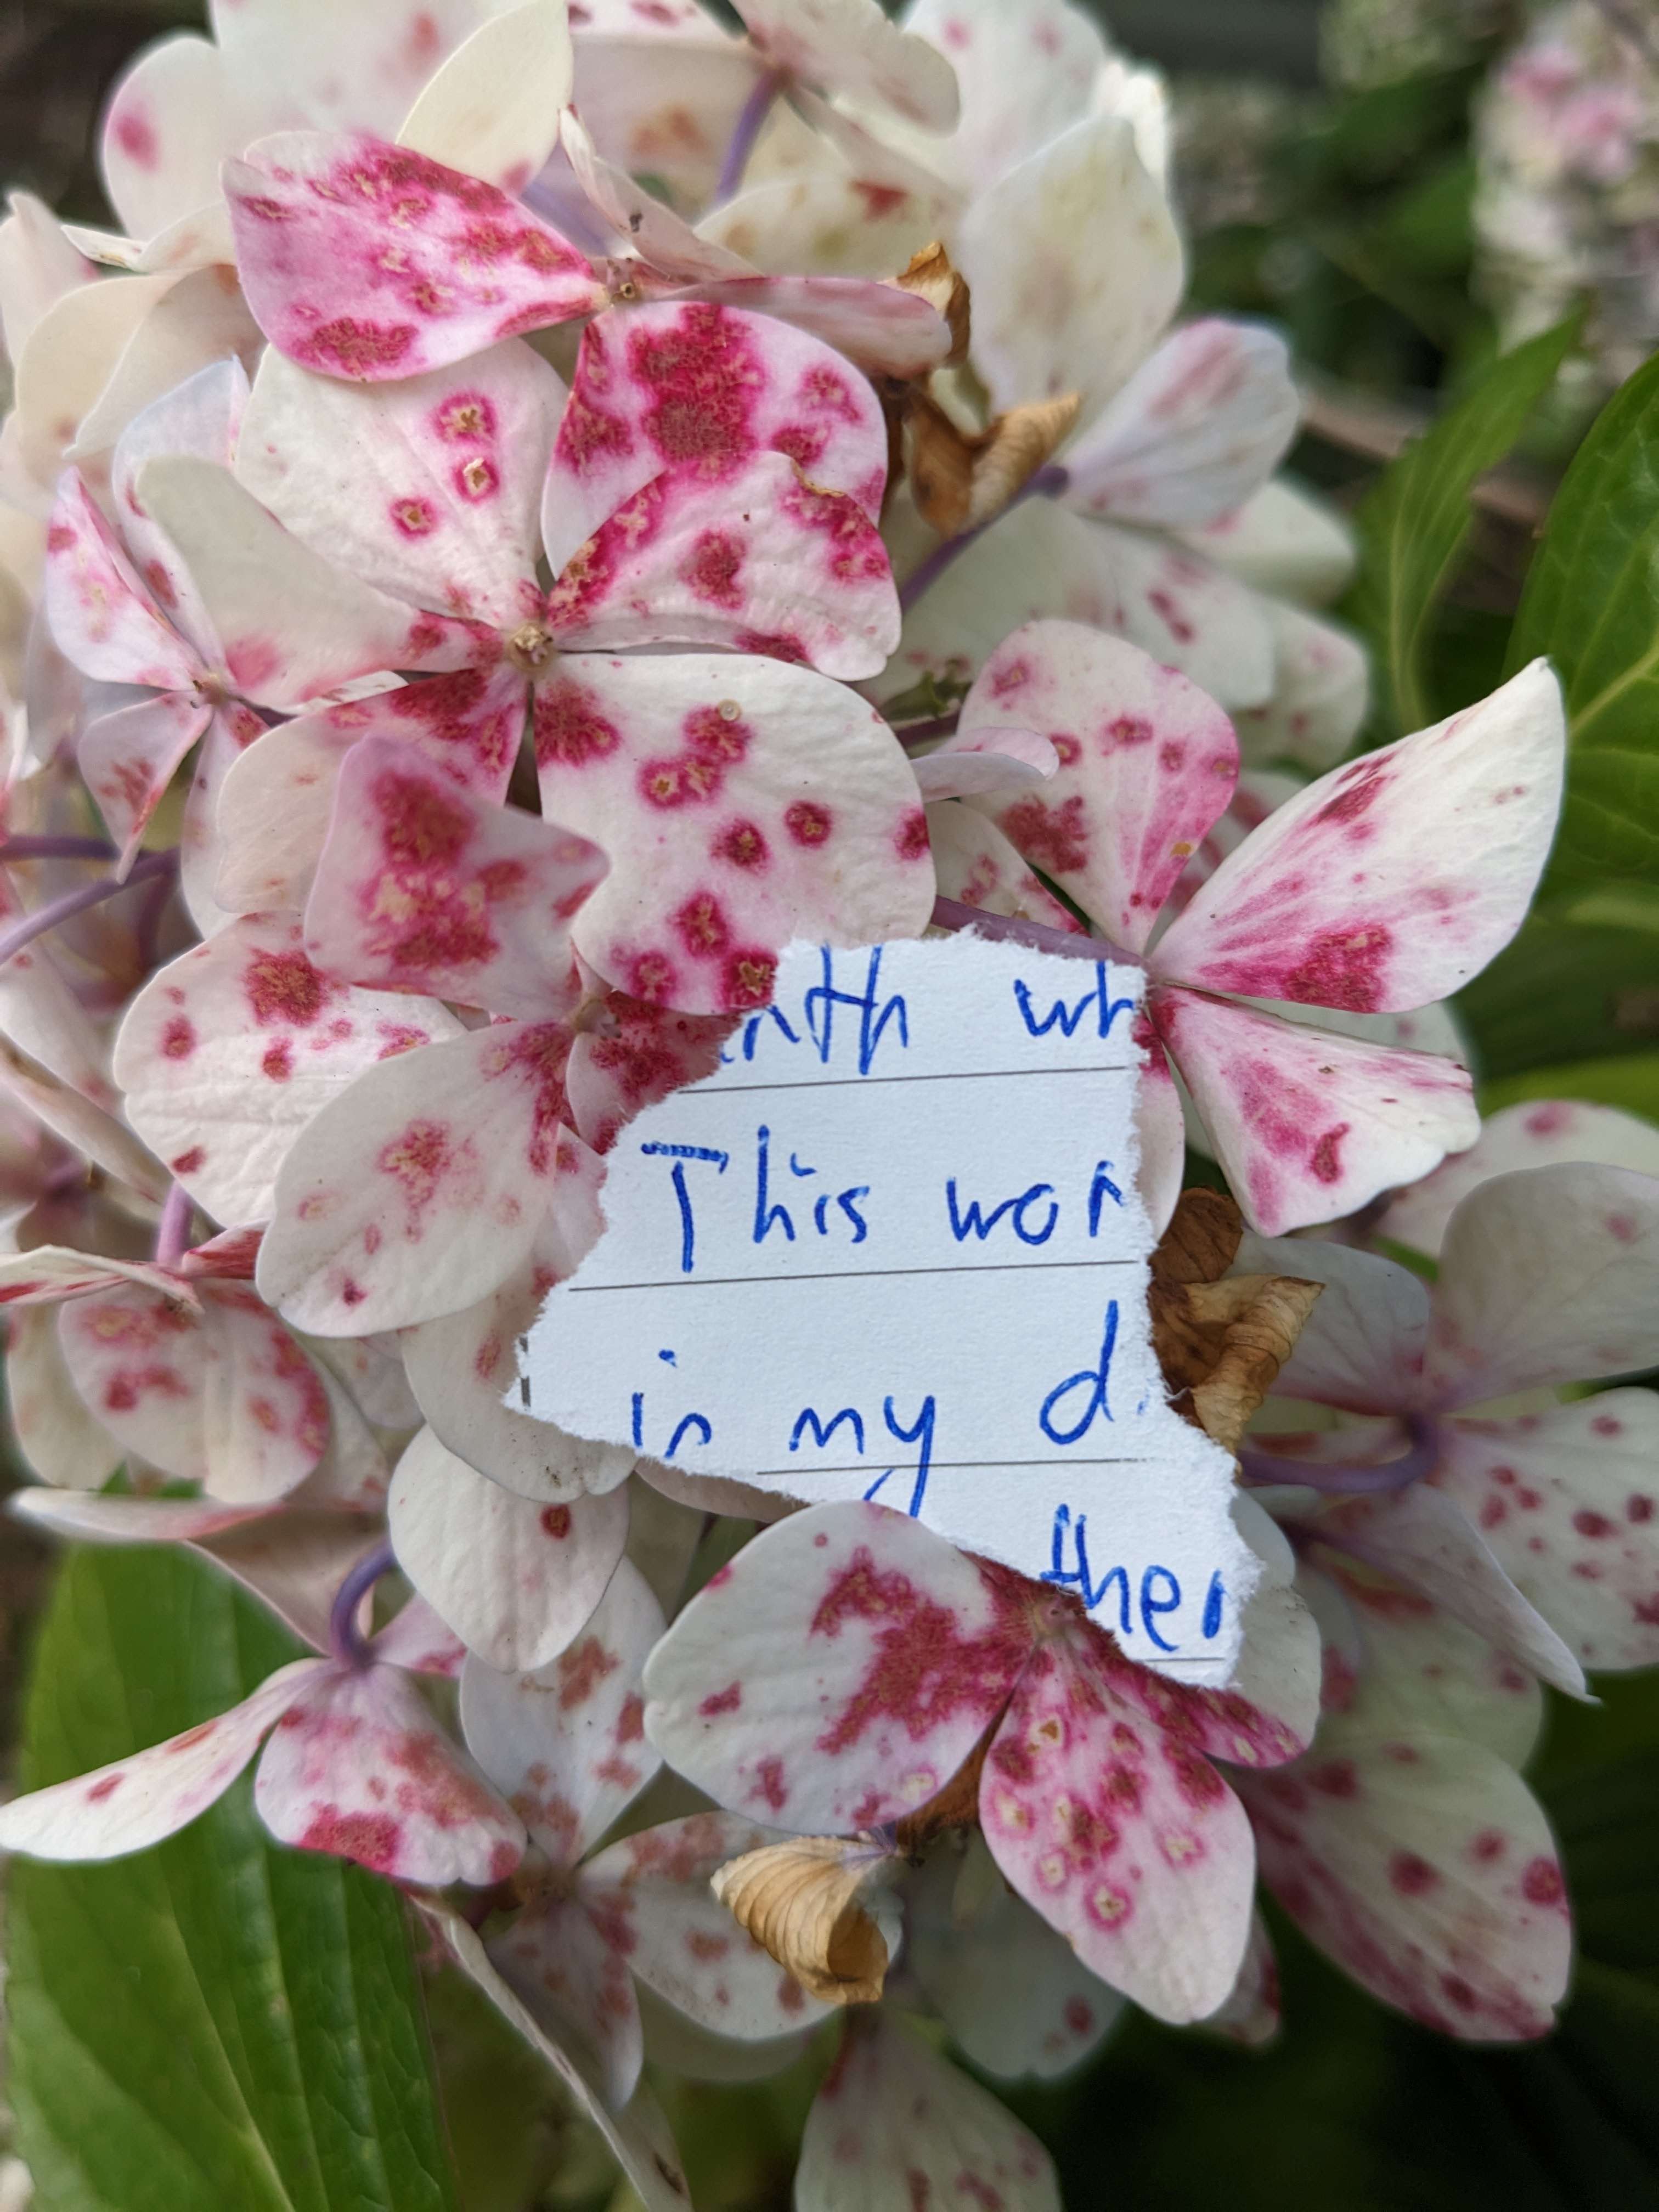 nth wh
This wor
in my d
ther